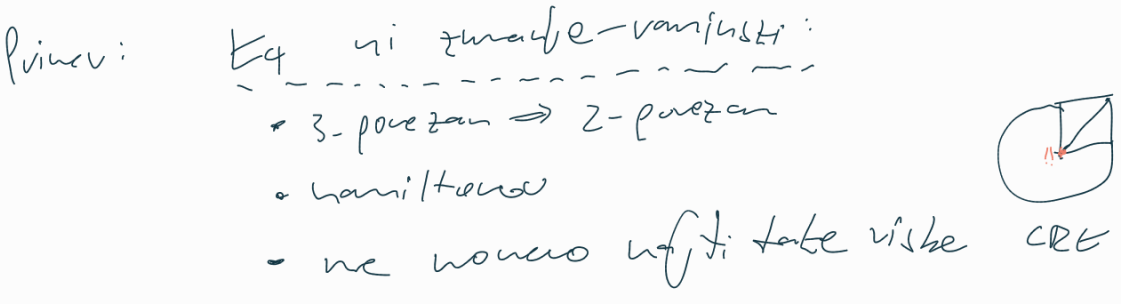 Primer: K4 ni zunanje-ravninski:
• 3-povezan ⇒ 2-povezan
• hamiltonov
!!
• ne moremo najti take risbe CRE